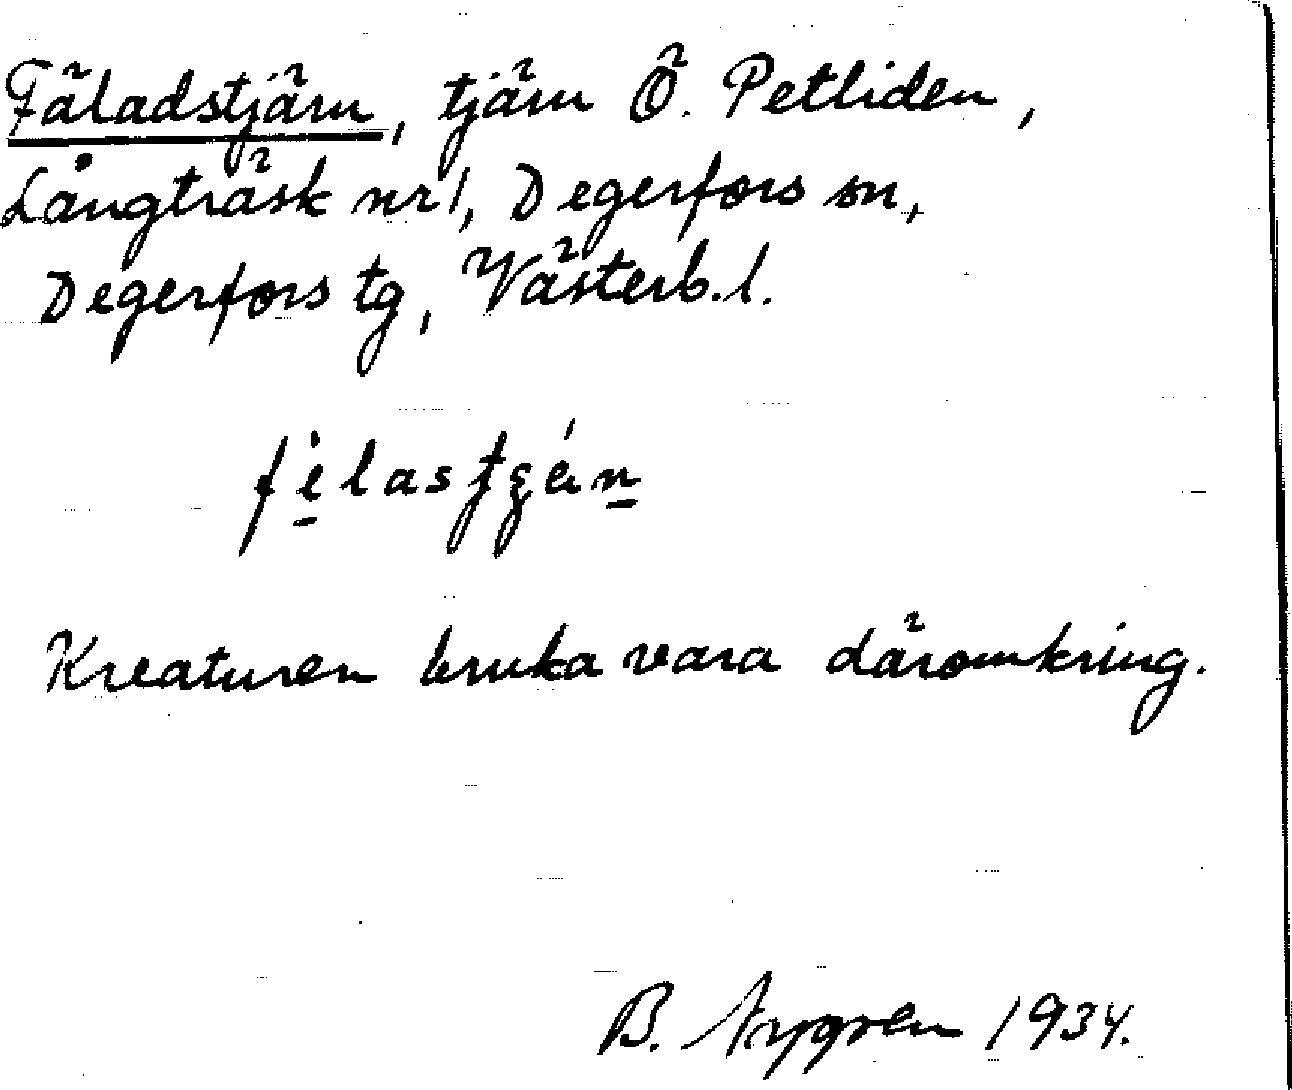 Fäladstjärn, tjärn Ö. Petliden,
Långträsk nr 1, Degerfors sn,
Degerfors tg, Västerb. l.
Kreaturen bruka vara däromkring.
B. Nygren 1934.